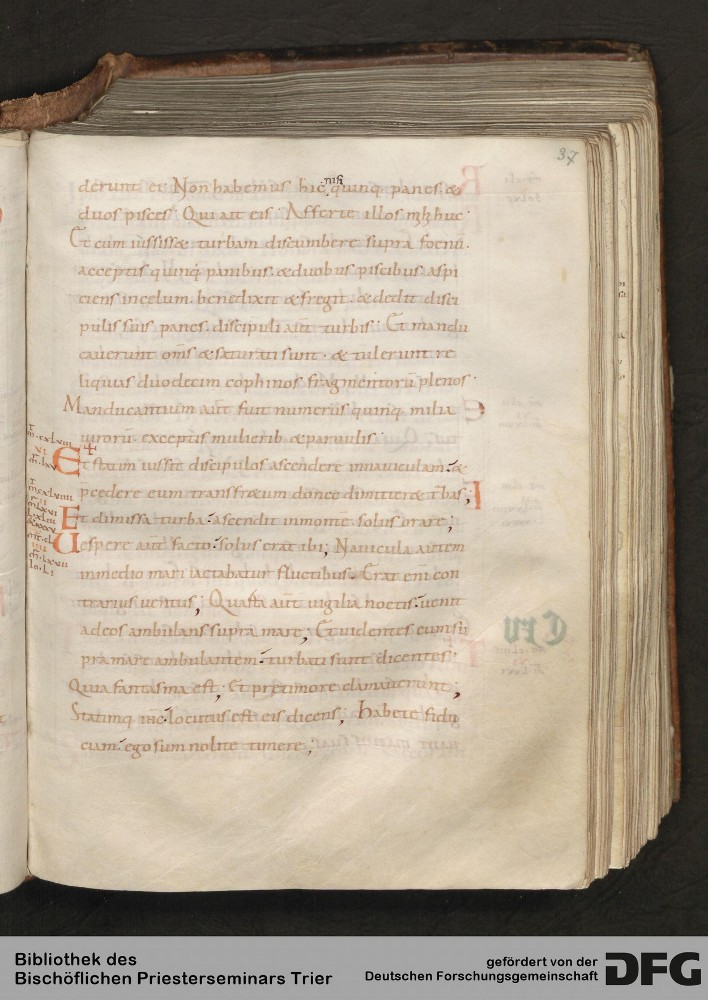 37
derunt ei Non habemus hic nisi quinq. panes. &
duos pisces. Qui ait eis. Afferte illos mihi huc.
Et cum iussiss& turbam discumbere supra foenū.
acceptis quinq. panibus. & duobus piscibus. aspi
ciens incelum. benedixit & fregit. & dedit disci
pulis suis panes. discipuli aūt turbis. Et mandu
cauerunt om̄s & saturati sunt. & tulerunt re
liquias duodecim cophinos fragmentorū plenos.
Manducantium aūt fuit numerus quinq. milia
uirorū. exceptis mulierib. & paruulis.
Et statim iussit discipulos ascendere innauiculam. &
pcedere eum transfr&um donec dimitter& t'bas;
Et dimissa turba. ascendit inmontē. solus orare;
Uespere aūt facto. solus erat ibi; Nauicula autem
inmedio mari iactabatur fluctibus. Erat enī con
trarius uentus; Quarta aūt uigilia noctis. uenit
adeos ambulans supra mare; Et uidentes eum su
pra mare ambulantem. turbati sunt dicentes.
Quia fantasma est; Et pretimore clamauerunt;
Statimq. ihc. locutus est eis dicens; Habete fidu
ciam. ego sum nolite timere;
Bibliothek des
Bischöflichen Priesterseminars Trier
gefördert von der
Deutschen Forschungsgemeinschaft
DFG